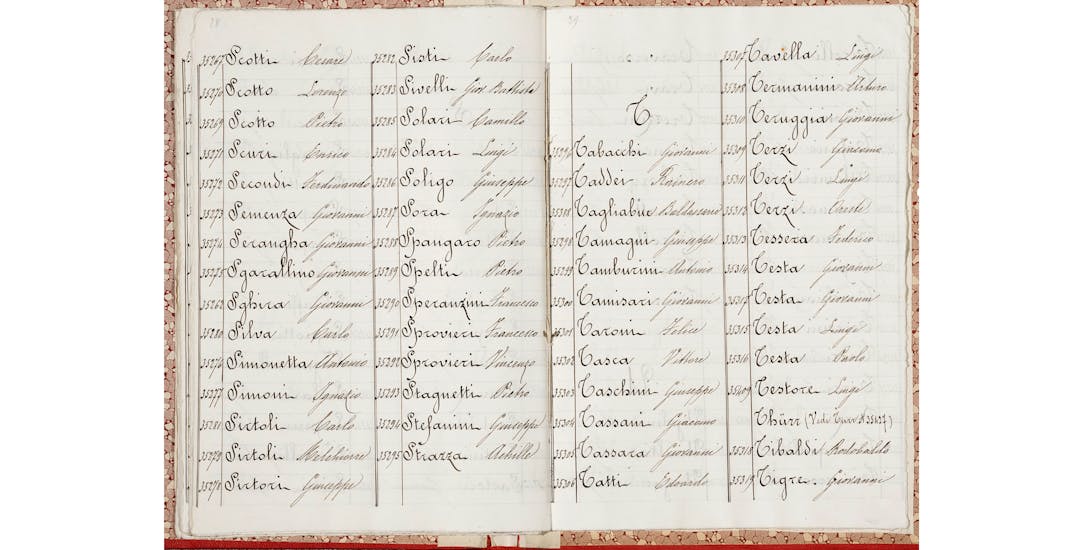 28
35267 Scotti Cesare
35270 Scotto Lorenzo
35269 Scotto Pietro
35271 Scuri Enrico
35272 Secondi Ferdinando
35273 Semenza Giovanni
35274 Serangha Giovanni
35275 Sgarallino Giovanni
35262 Sghira Giovanni
35280 Silva Carlo
35276 Simonetta Antonio
35277 Simoni Ignazio
35281 Sirtoli Carlo
35279 Sirtoli Melchiorre
35278 Sirtori Giuseppe
35282 Sisti Carlo
35283 Sivelli Giov Battista
35285 Solari Camillo
35284 Solari Luigi
35286 Soligo Giuseppe
35287 Sora Ignazio
35288 Spangaro Pietro
35289 Spelti Pietro
35290 Speranzini Francesco
35291 Sprovieri Francesco
35292 Sprovieri Vincenzo
35293 Stagnetti Pietro
35294 Stefanini Giuseppe
35295 Strazza Achille
29
T
35296 Tabacchi Giovanni
35297 Taddei Rainero
Tagliabue Baldassare
35298 Tamagni Giuseppe
35299 Tamburini Antonio
35300 Tamisari Giovanni
35301 Taroni Felice
35302 Tasca Vittore
35303 Taschini Giuseppe
35304 Tassani Giacomo
35305 Tassara Giovanni
35306 Tatti Edoardo
35307 Tavella Luigi
35308 Termanini Arturo
35310 Teruggia Giovanni
35309 Terzi Giacomo
35311 Terzi Luigi
35312 Terzi Oreste
35313 Tessera Federico
35314 Testa Giovanni
35317 Testa Giovanni
35315 Testa Luigi
35316 Testa Paolo
35409 Testore Luigi
Thürr (Vedi Turr N 35427)
35318 Tibaldi Rodobaldo
35319 Tigre Giovanni